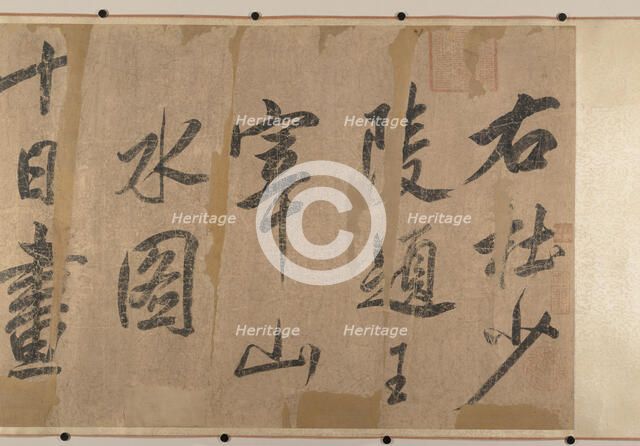 右杜少
陵題王
宰山
水圖
十日畫
Heritage
Heritage
Heritage
Heritage
Heritage
Heritage
Heritage
Heritage
Heritage
©